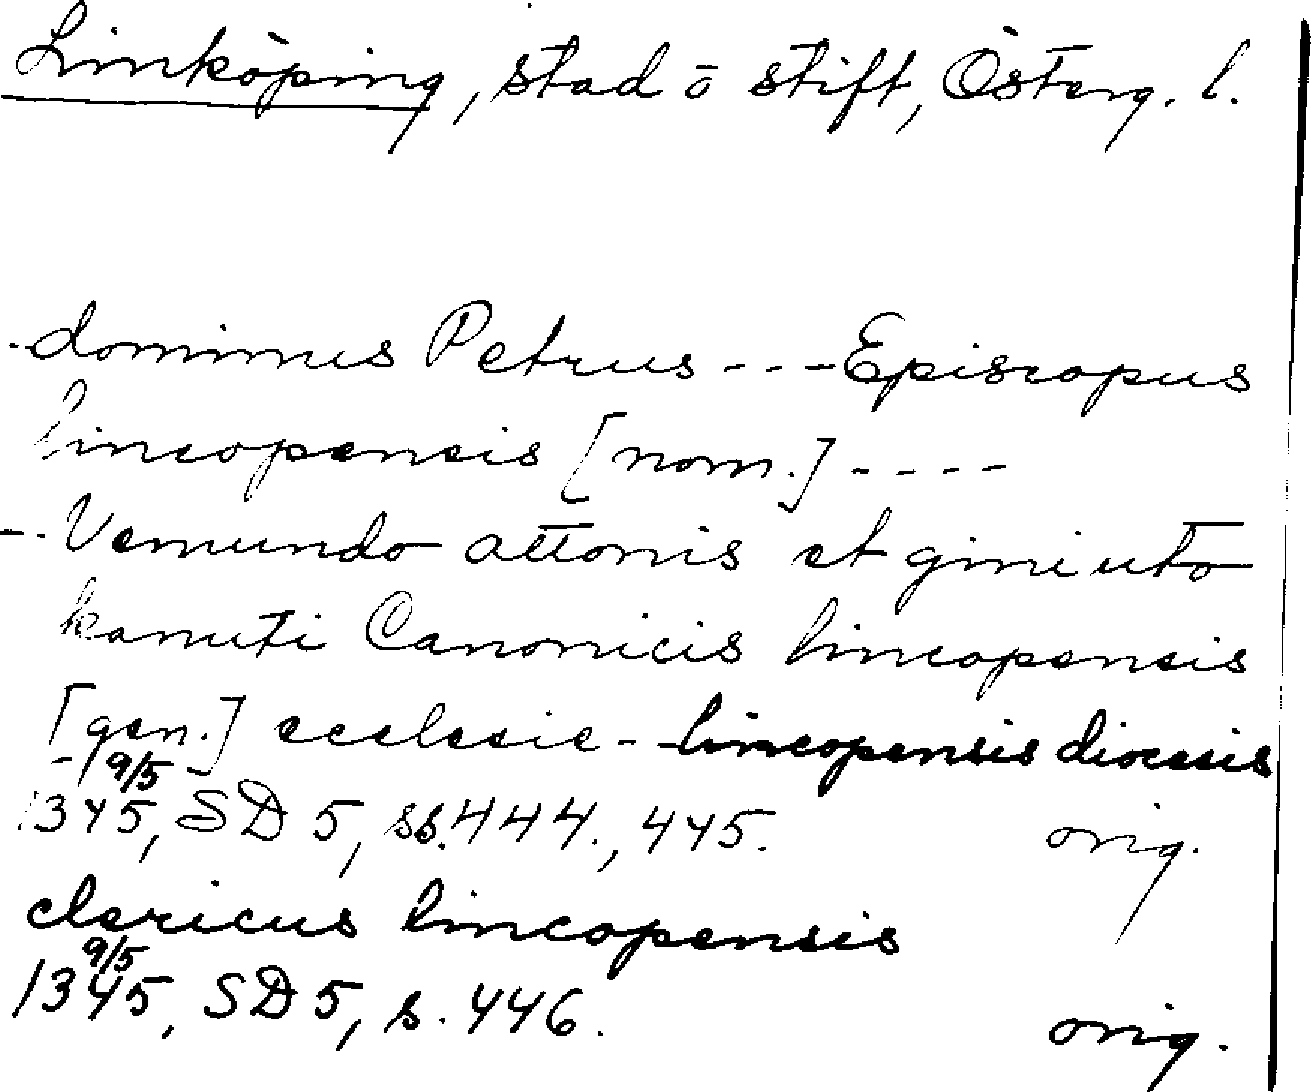 Linköping, stad ō stift, Österg. l.
- dominus Petrus --- Episcopus
lincopensis [nom.] ----
-- Vemundo attonis et giniuto
kanuti Canonicis lincopensis
[gen.] ecclesie -- lincopensis diocesis
9/5
1345, SD 5, ss. 444., 445. orig.
clericus lincopensis
9/5
1345, SD 5, s. 446. orig.